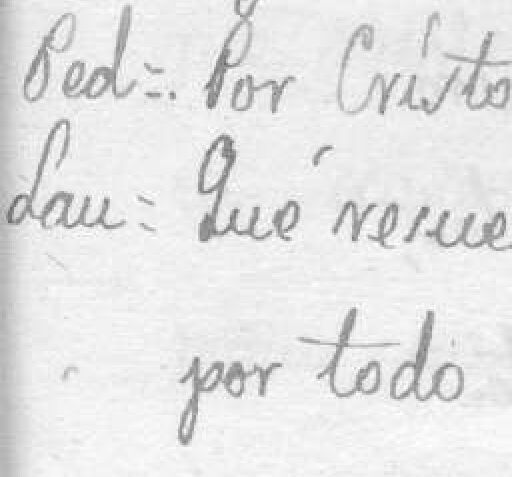 Ped=. Por Cristo
Lau= Qué resue
por todo